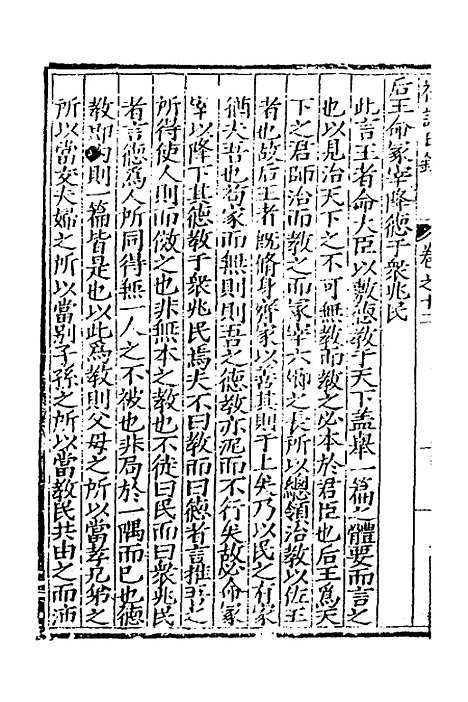 禮記日錄　卷之十二
后王命冢宰降德于衆兆民
此言王者命大臣以敷德教于天下蓋舉一篇之體要而言之
也以見治天下之不可無教而教之必本於君臣也后王爲天
下之君師治而教之而冢宰六卿之長所以總領治教以佐王
者也故后王者旣脩身齊家以善其則于上矣乃以民之有家
猶夫吾也苟家而無則則吾之德教亦泥而不行矣故必命冢
宰以降下其德教于衆兆民焉夫不曰教而曰德者言推吾之
所得使人則而傚之也非無本之教也不徒曰民而曰衆兆民
者言德爲人所同得無一人之不被也非局於一隅而已也德
教即內則一篇皆是也以此爲教則父母之所以當孝兄弟之
所以當友夫婦之所以當別子孫之所以當教民共由之而沛